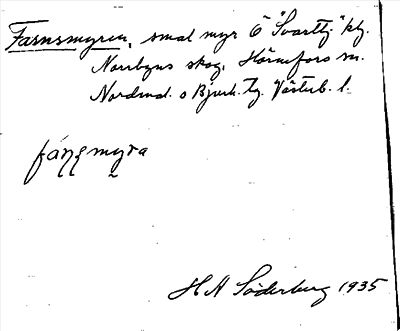 Farnsmyren, smal myr Ö "Svarttj." kfg.
Norrbyns skog. Hörnefors sn.
Nordmal. o Bjurh. tg. Västerb. l.
fáŋŋmyra
H A Söderberg 1935